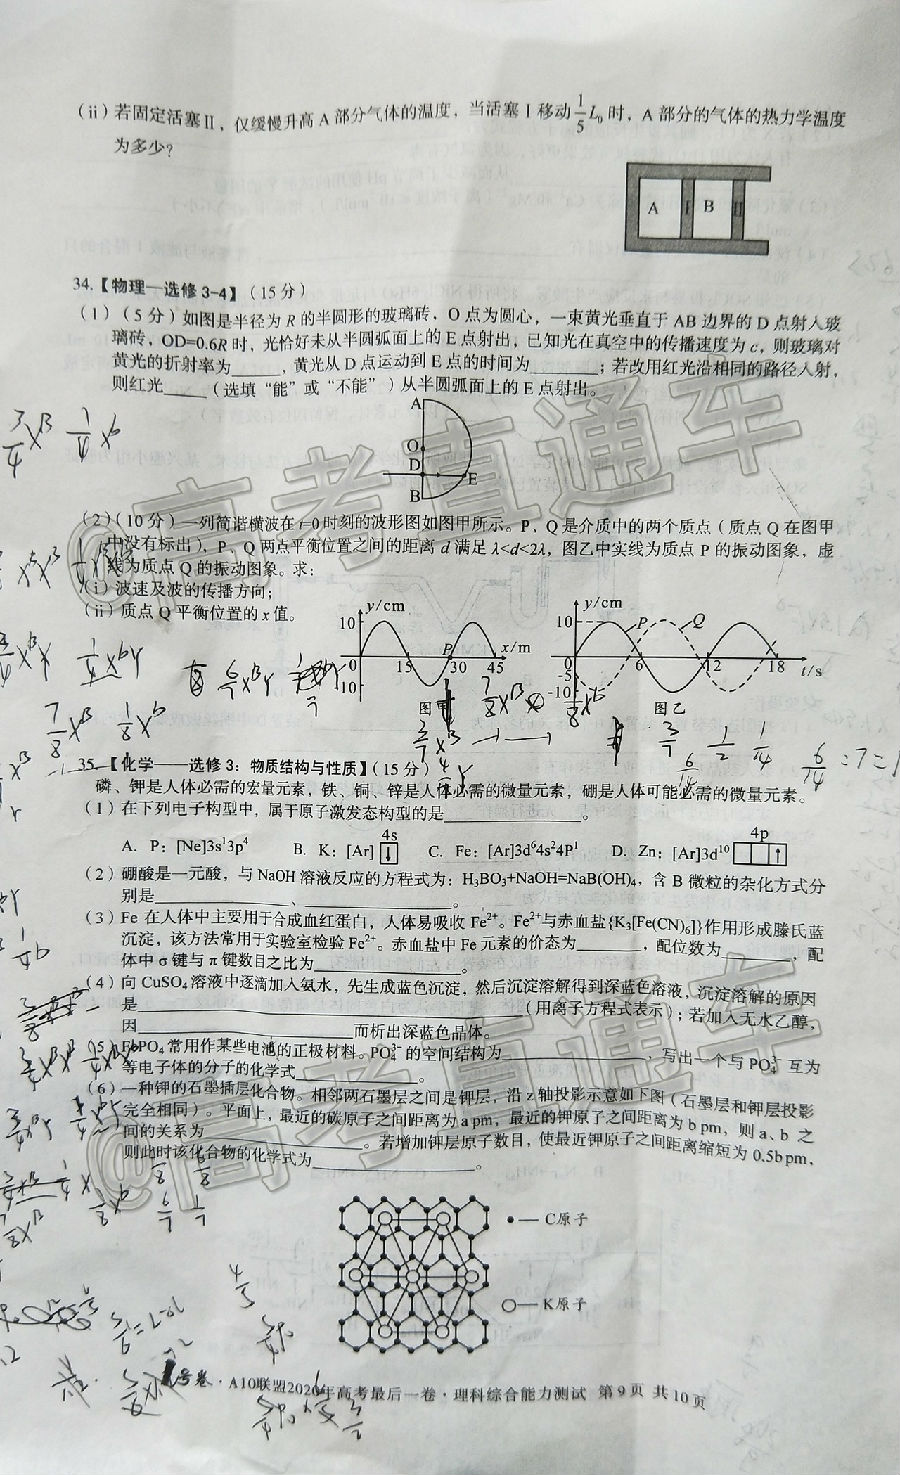 (ii) 若固定活塞Ⅱ，仅缓慢升高A部分气体的温度，当活塞Ⅰ移动1/5 L₀时，A部分的气体的热力学温度
为多少?
A Ⅰ B Ⅱ
34.【物理—选修3-4】(15分)
(1)(5分)如图是半径为R的半圆形的玻璃砖，O点为圆心，一束黄光垂直于AB边界的D点射入玻
璃砖，OD=0.6R时，光恰好未从半圆弧面上的E点射出，已知光在真空中的传播速度为c，则玻璃对
黄光的折射率为______，黄光从D点运动到E点的时间为______；若改用红光沿相同的路径入射，
则红光____（选填“能”或“不能”）从半圆弧面上的E点射出。
A
O
D
E
B
(2)(10分)一列简谐横波在t=0时刻的波形图如图甲所示。P、Q是介质中的两个质点（质点Q在图甲
中没有标出），P、Q两点平衡位置之间的距离d满足λ<d<2λ，图乙中实线为质点P的振动图象，虚
线为质点Q的振动图象。求：
(i)波速及波的传播方向；
(ii)质点Q平衡位置的x值。
y/cm
10
0 15 P 30 45 x/m
-10
图甲
y/cm
10 P Q
0 6 12 18 t/s
-5
-10
图乙
35.【化学——选修3：物质结构与性质】(15分)
磷、钾是人体必需的宏量元素，铁、铜、锌是人体必需的微量元素，硼是人体可能必需的微量元素。
(1)在下列电子构型中，属于原子激发态构型的是____________。
A. P：[Ne]3s¹3p⁴ B. K：[Ar] 4s ↓ C. Fe：[Ar]3d⁶4s²4P¹ D. Zn：[Ar]3d¹⁰ 4p ↑
(2)硼酸是一元酸，与NaOH溶液反应的方程式为：H₃BO₃+NaOH=NaB(OH)₄，含B微粒的杂化方式分
别是____________、____________。
(3)Fe在人体中主要用于合成血红蛋白，人体易吸收Fe²⁺。Fe²⁺与赤血盐{K₃[Fe(CN)₆]}作用形成滕氏蓝
沉淀，该方法常用于实验室检验Fe²⁺。赤血盐中Fe元素的价态为______，配位数为______，配
体中σ键与π键数目之比为____________。
(4)向CuSO₄溶液中逐滴加入氨水，先生成蓝色沉淀，然后沉淀溶解得到深蓝色溶液，沉淀溶解的原因
是________________________（用离子方程式表示）；若加入无水乙醇，
因________________而析出深蓝色晶体。
(5)FePO₄常用作某些电池的正极材料。PO₄³⁻的空间结构为____________，写出一个与PO₄³⁻互为
等电子体的分子的化学式____________。
(6)一种钾的石墨插层化合物。相邻两石墨层之间是钾层，沿z轴投影示意如下图（石墨层和钾层投影
完全相同）。平面上，最近的碳原子之间距离为a pm，最近的钾原子之间距离为b pm，则a、b之
间的关系为____________。若增加钾层原子数目，使最近钾原子之间距离缩短为0.5b pm，
则此时该化合物的化学式为____________。
●—C原子
○—K原子
号卷·A10联盟2020年高考最后一卷·理科综合能力测试 第9页 共10页
@高考直通车
@高考直通车